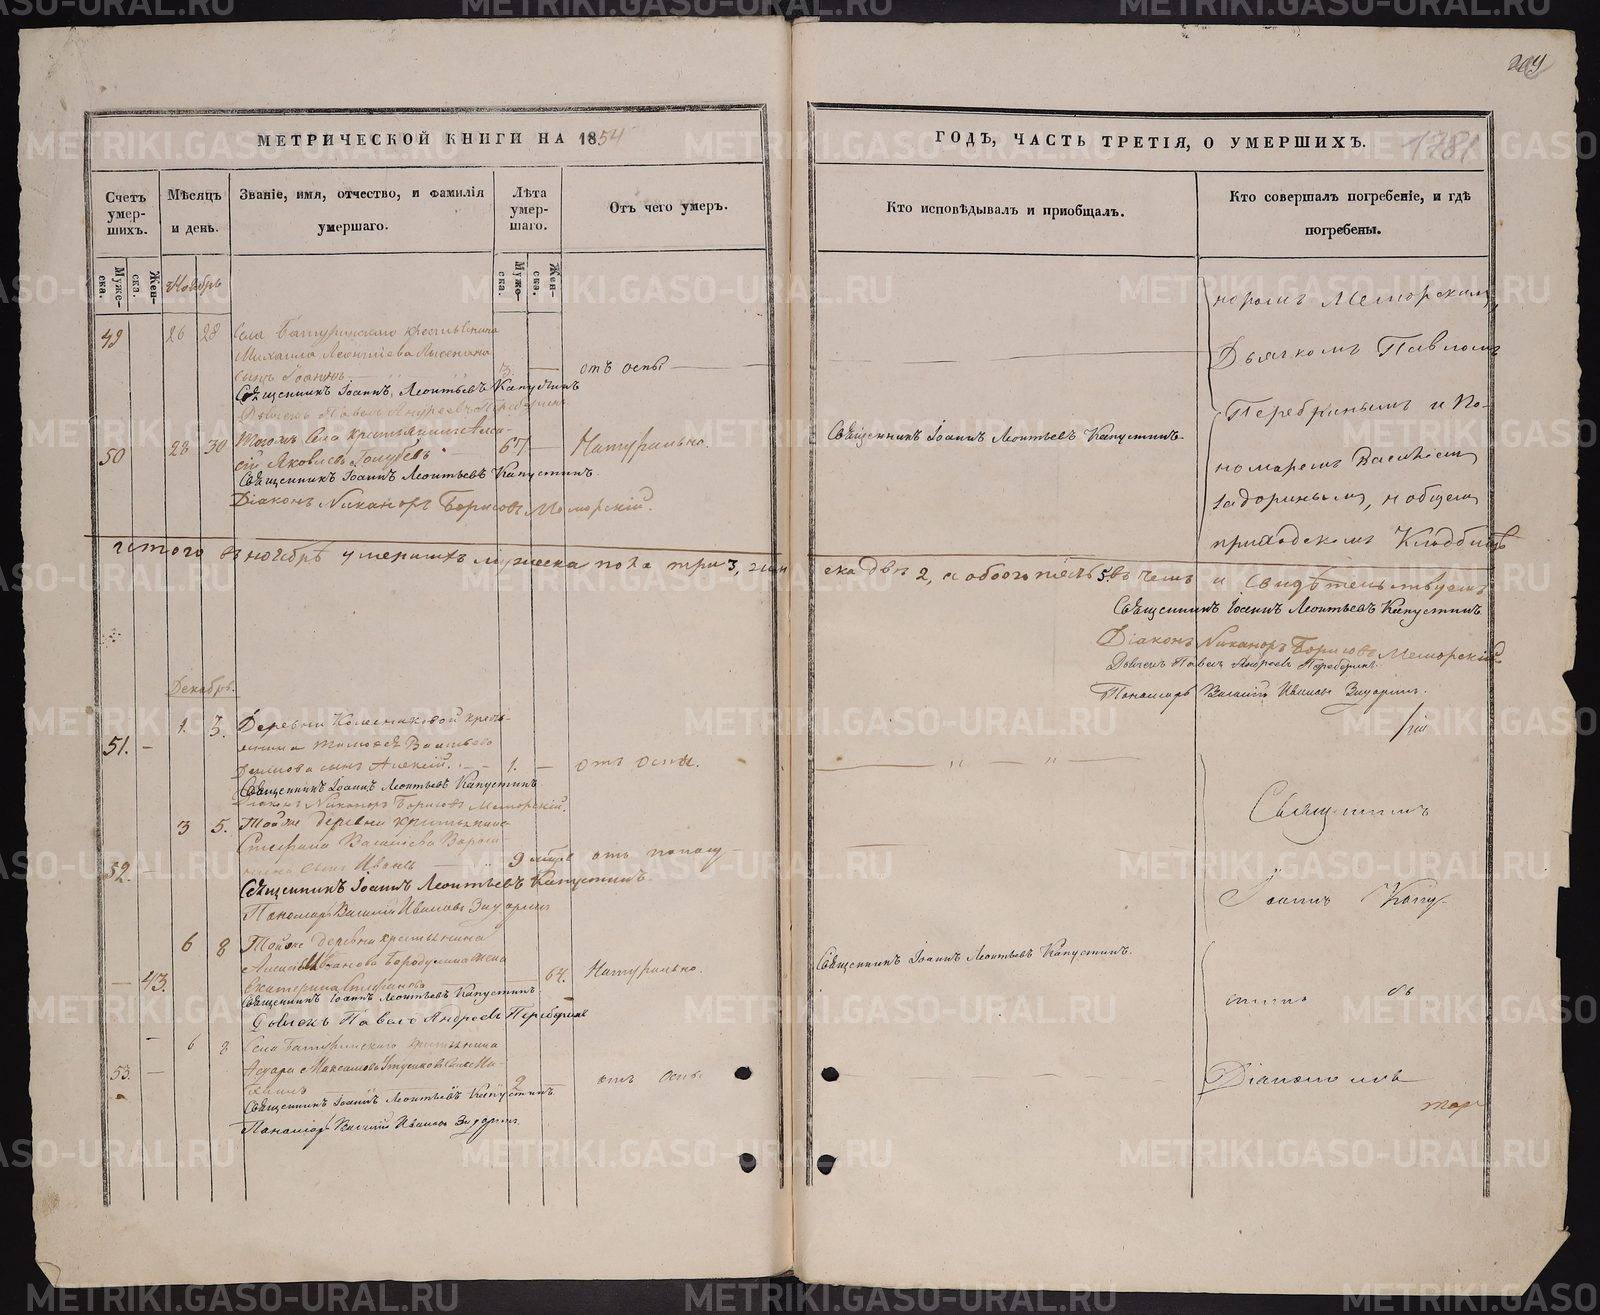 МЕТРИЧЕСКОЙ КНИГИ НА 1854
Счетъ умер-шихъ.
Муже-ска.
Жен-ска.
Мѣсяцъ и день.
Званіе, имя, отчество, и фамилія умершаго.
Лѣта умер-шаго.
Муже-ска.
Жен-ска.
Отъ чего умеръ.
Ноябрь
49 26 28 Села Батуринскаго крестьянина
Михаила Леонтіева
сынъ Іоаннъ 3. отъ оспы
Священникъ Іоаннъ Леонтьевъ Капустинъ
Дьячекъ Павелъ Андреевъ Перебринъ
50 28 30 Тогожъ Села крестьянинъ Алек-
сій Яковлевъ Голубевъ 67 Натурально.
Священникъ Іоаннъ Леонтьевъ Капустинъ
Діаконъ Никаноръ Борисовъ Меморскій.
Итого въ ноябрѣ умершихъ мужеска пола три 3, жен
Декабрь.
51. 1. 3. Деревни кресть-
янина Тимофея Васильева
сынъ Алексій. 1. отъ оспы.
Священникъ Іоаннъ Леонтьевъ Капустинъ
Діаконъ Никаноръ Борисовъ Меморскій.
3 5. Тойже деревни крестьянина
Стефана Васильева
52. сынъ Иванъ 9 мѣс. отъ
Священникъ Іоаннъ Леонтьевъ Капустинъ.
Пономарь Василій Ивановъ Задоринъ
6 8 Тойже деревни крестьянина
Иванова Бородулина жена
43. Екатерина Стефанова 64. Натурально.
Священникъ Іоаннъ Леонтьевъ Капустинъ
Дьячекъ Павелъ Андреевъ Перебринъ
6 8 Села Батуринскаго крестьянина
53. Максимова сынъ Ми-
хаилъ 2 отъ Оспы
Священникъ Іоаннъ Леонтьевъ Капустинъ.
Пономарь Василій Ивановъ Задоринъ.
ГОДЪ, ЧАСТЬ ТРЕТІЯ, О УМЕРШИХЪ.
1781
Кто исповѣдывалъ и пріобщалъ.
Кто совершалъ погребеніе, и гдѣ погребены.
норомъ Меморскимъ,
Дьячкомъ Павломъ
Перебринымъ и По-
номаремъ Василіемъ
Задоринымъ, на общемъ
приходскомъ Кладбищѣ
Священникъ Іоаннъ Леонтьевъ Капустинъ.
ска двѣ 2, а обоего пять 5. въ чемъ и свидѣтельствуемъ
Священникъ Іоаннъ Леонтьевъ Капустинъ
Діаконъ Никаноръ Борисовъ Меморскій
Дьячекъ Павелъ Андреевъ Перебринъ
Пономарь Василій Ивановъ Задоринъ.
Священникъ
Іоаннъ Капу-
Священникъ Іоаннъ Леонтьевъ Капустинъ.
стинъ съ
Діакономъ
METRIKI.GASO-URAL.RU